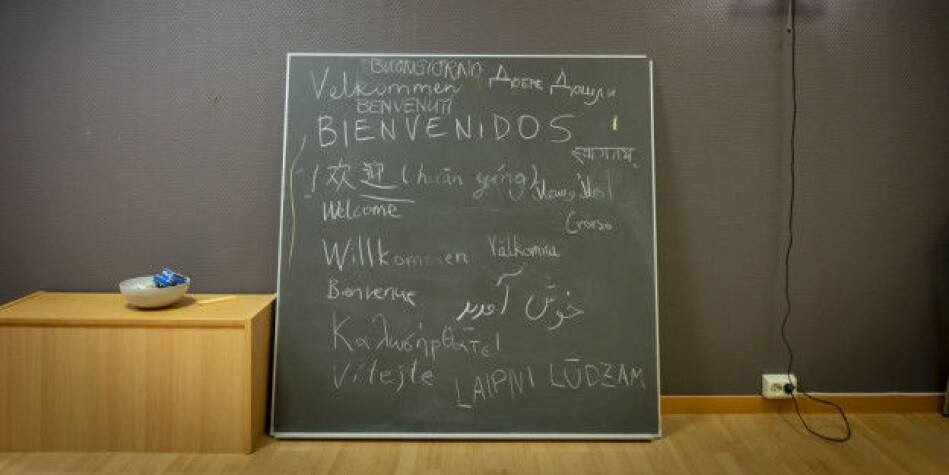 BUONGIORNO
Velkommen Добре Дошли
BENVENUTI
BIENVENIDOS
स्वागतम्
! 欢迎 (huān yíng) اهلا وسهلا
Welcome
Willkommen Välkomna
Bienvenue خوش آمدید
Καλωσήρθατε!
Vitejte LAIPNI LŪDZAM